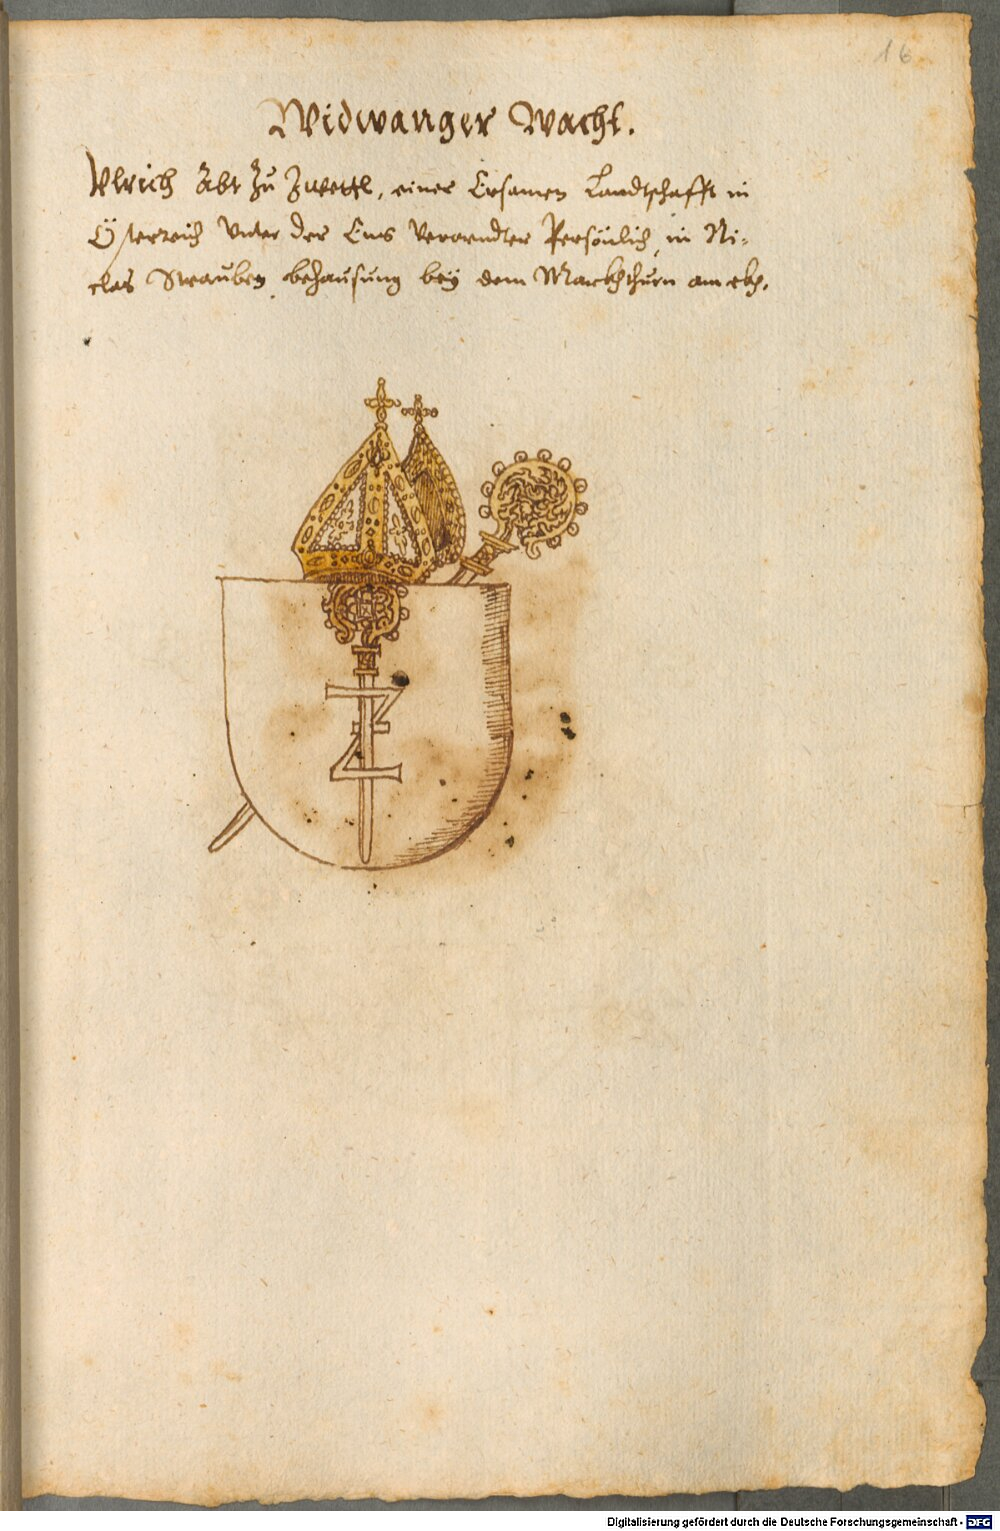 16
Widwanger Wacht.
Ulrich Abt Zu Zwettl, einer Ersamen Landtschafft in
Österreich Unter der Ens Verorndter Persönlich, in Ni-
clas Strauben behausung bey dem Marckhthurn am ekh.
Z
Digitalisierung gefördert durch die Deutsche Forschungsgemeinschaft - DFG